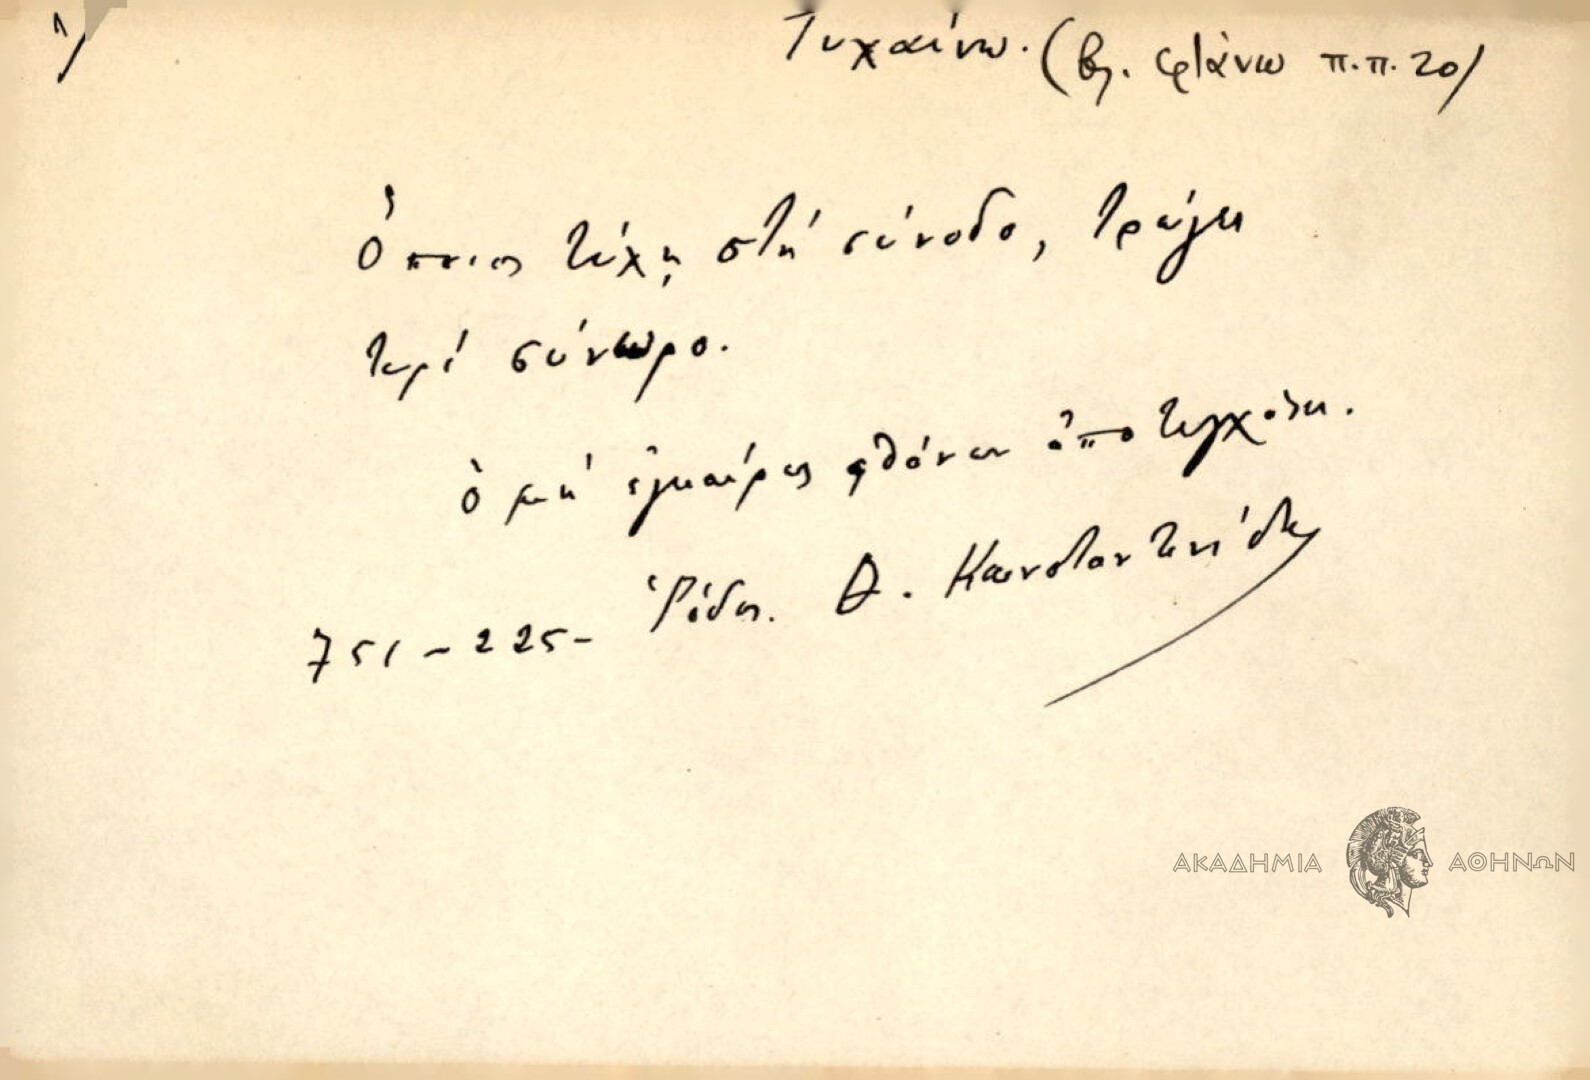 1)
Τυχαίνω. (βλ. φτάνω π.π. 20)
Ὅποιος τύχῃ στή σύνοδο, τρώγει
τυρί σύνωρο.
Ὁ μή ἐγκαίρως φθάνων ἀποτυγχάνει.
751-225- Ῥόδος. Θ. Κωνσταντινίδης
ΑΚΑΔΗΜΙΑ ΑΘΗΝΩΝ